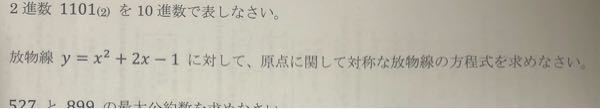 2進数 1101₍₂₎ を10進数で表しなさい。
放物線 y = x² + 2x − 1 に対して、原点に関して対称な放物線の方程式を求めなさい。
527 と 899 の最大公約数を求めなさい